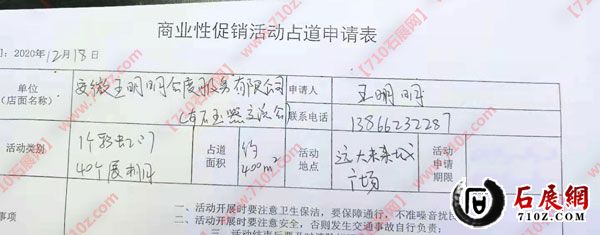 商业性促销活动占道申请表
间：2020年12月18日
单位
（店面名称）
安徽王明明会展服务有限公司
（奇石玉器交流会）
申请人
王明明
联系电话
13866232287
活动类别
1个彩虹门
40个展
占道
面积
约
400m²
活动
地点
远大未来城
广场
活动
申请
期限
事项
一、活动开展时要注意卫生保洁，要保障通行，不准噪音扰民
二、活动开展时要注意安全，否则发生交通事故自行负责；
石展網
710z.com
【710z石展网】
www.710z.com